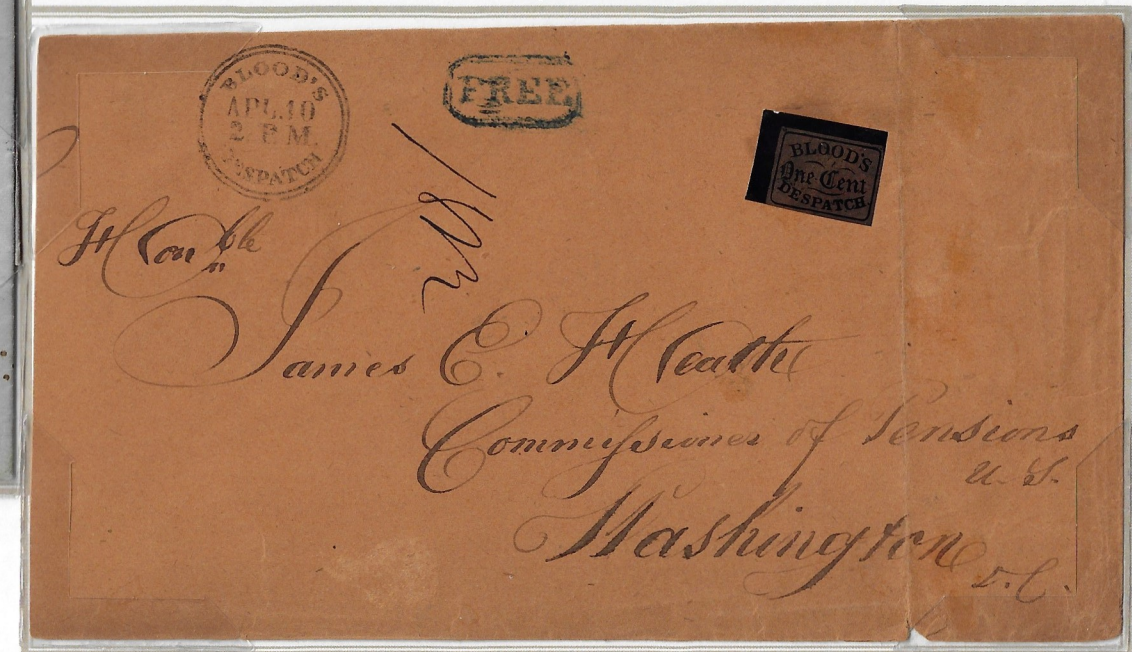 BLOOD'S
APL.10
2 P M.
DESPATCH
FREE
BLOOD'S
One Cent
DESPATCH
Honble
James E. Heath
Commissioner of Pensions
U. S.
Washington
D. C.